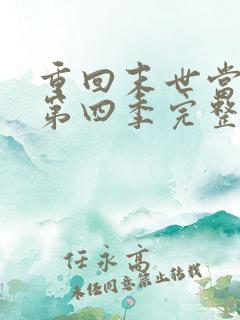 重回末世当
第四季完整
任永高
未经同意禁止转载